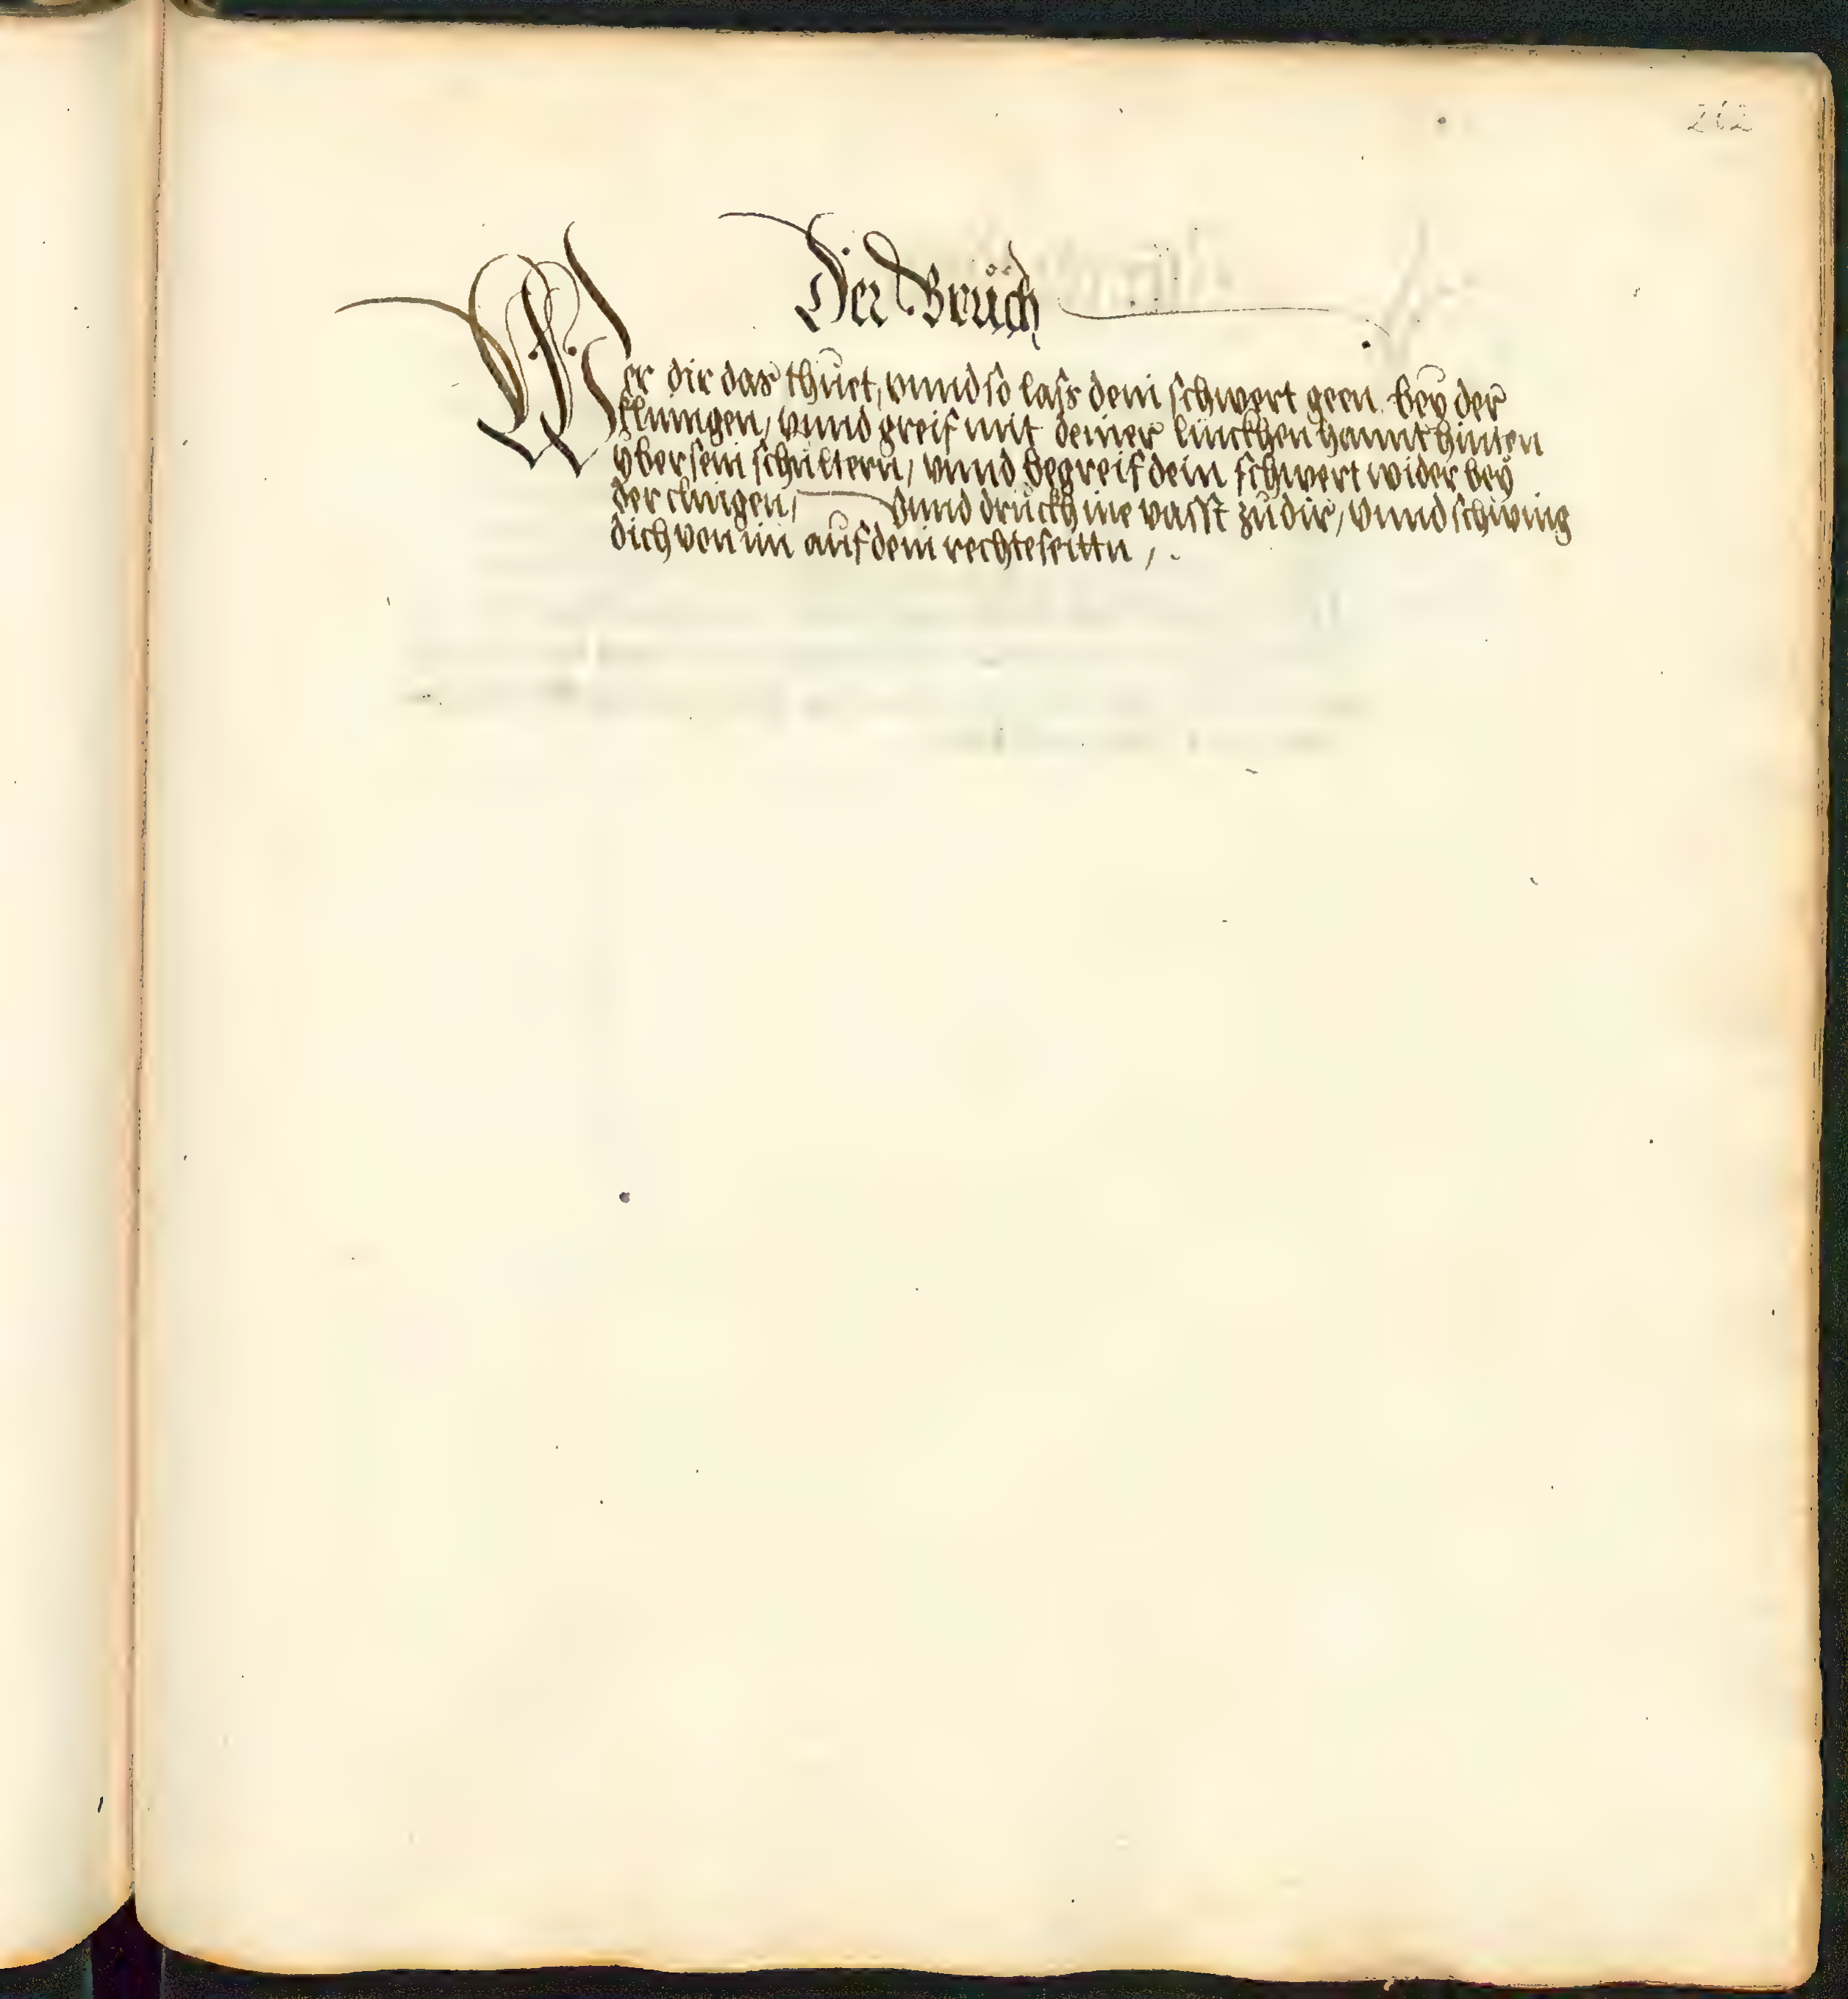 262
Der Brůch
Wer dir das thůet, vnnd so lass dein schwert geen bey der
klinngen, vnnd greif mit deiner linckhen hannt hinten
vber sein schultern, vnnd begreif dein schwert wider bey
der clingen, vnnd druckh ine vasst zů dir, vnnd schwing
dich von im aůf dein rechte seittn,